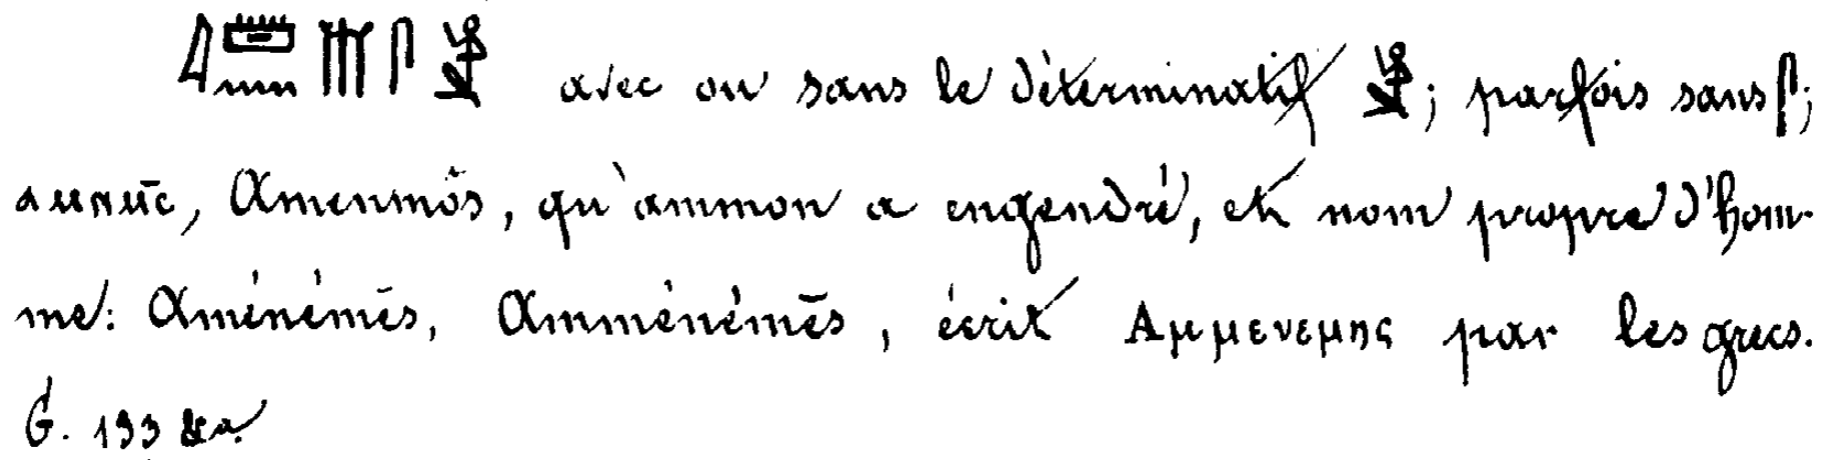 𓇋𓏠𓈖𓄟𓋴𓀀 avec ou sans le déterminatif 𓀀; parfois sans 𓋴;
ⲁⲙⲛⲙ̄ⲥ, Amenmôs, qu'ammon a engendré, est nom propre d'hom-
me: Aménémēs, Amménémēs, écrit Αμμενεμης par les grecs.
G. 133 &a.